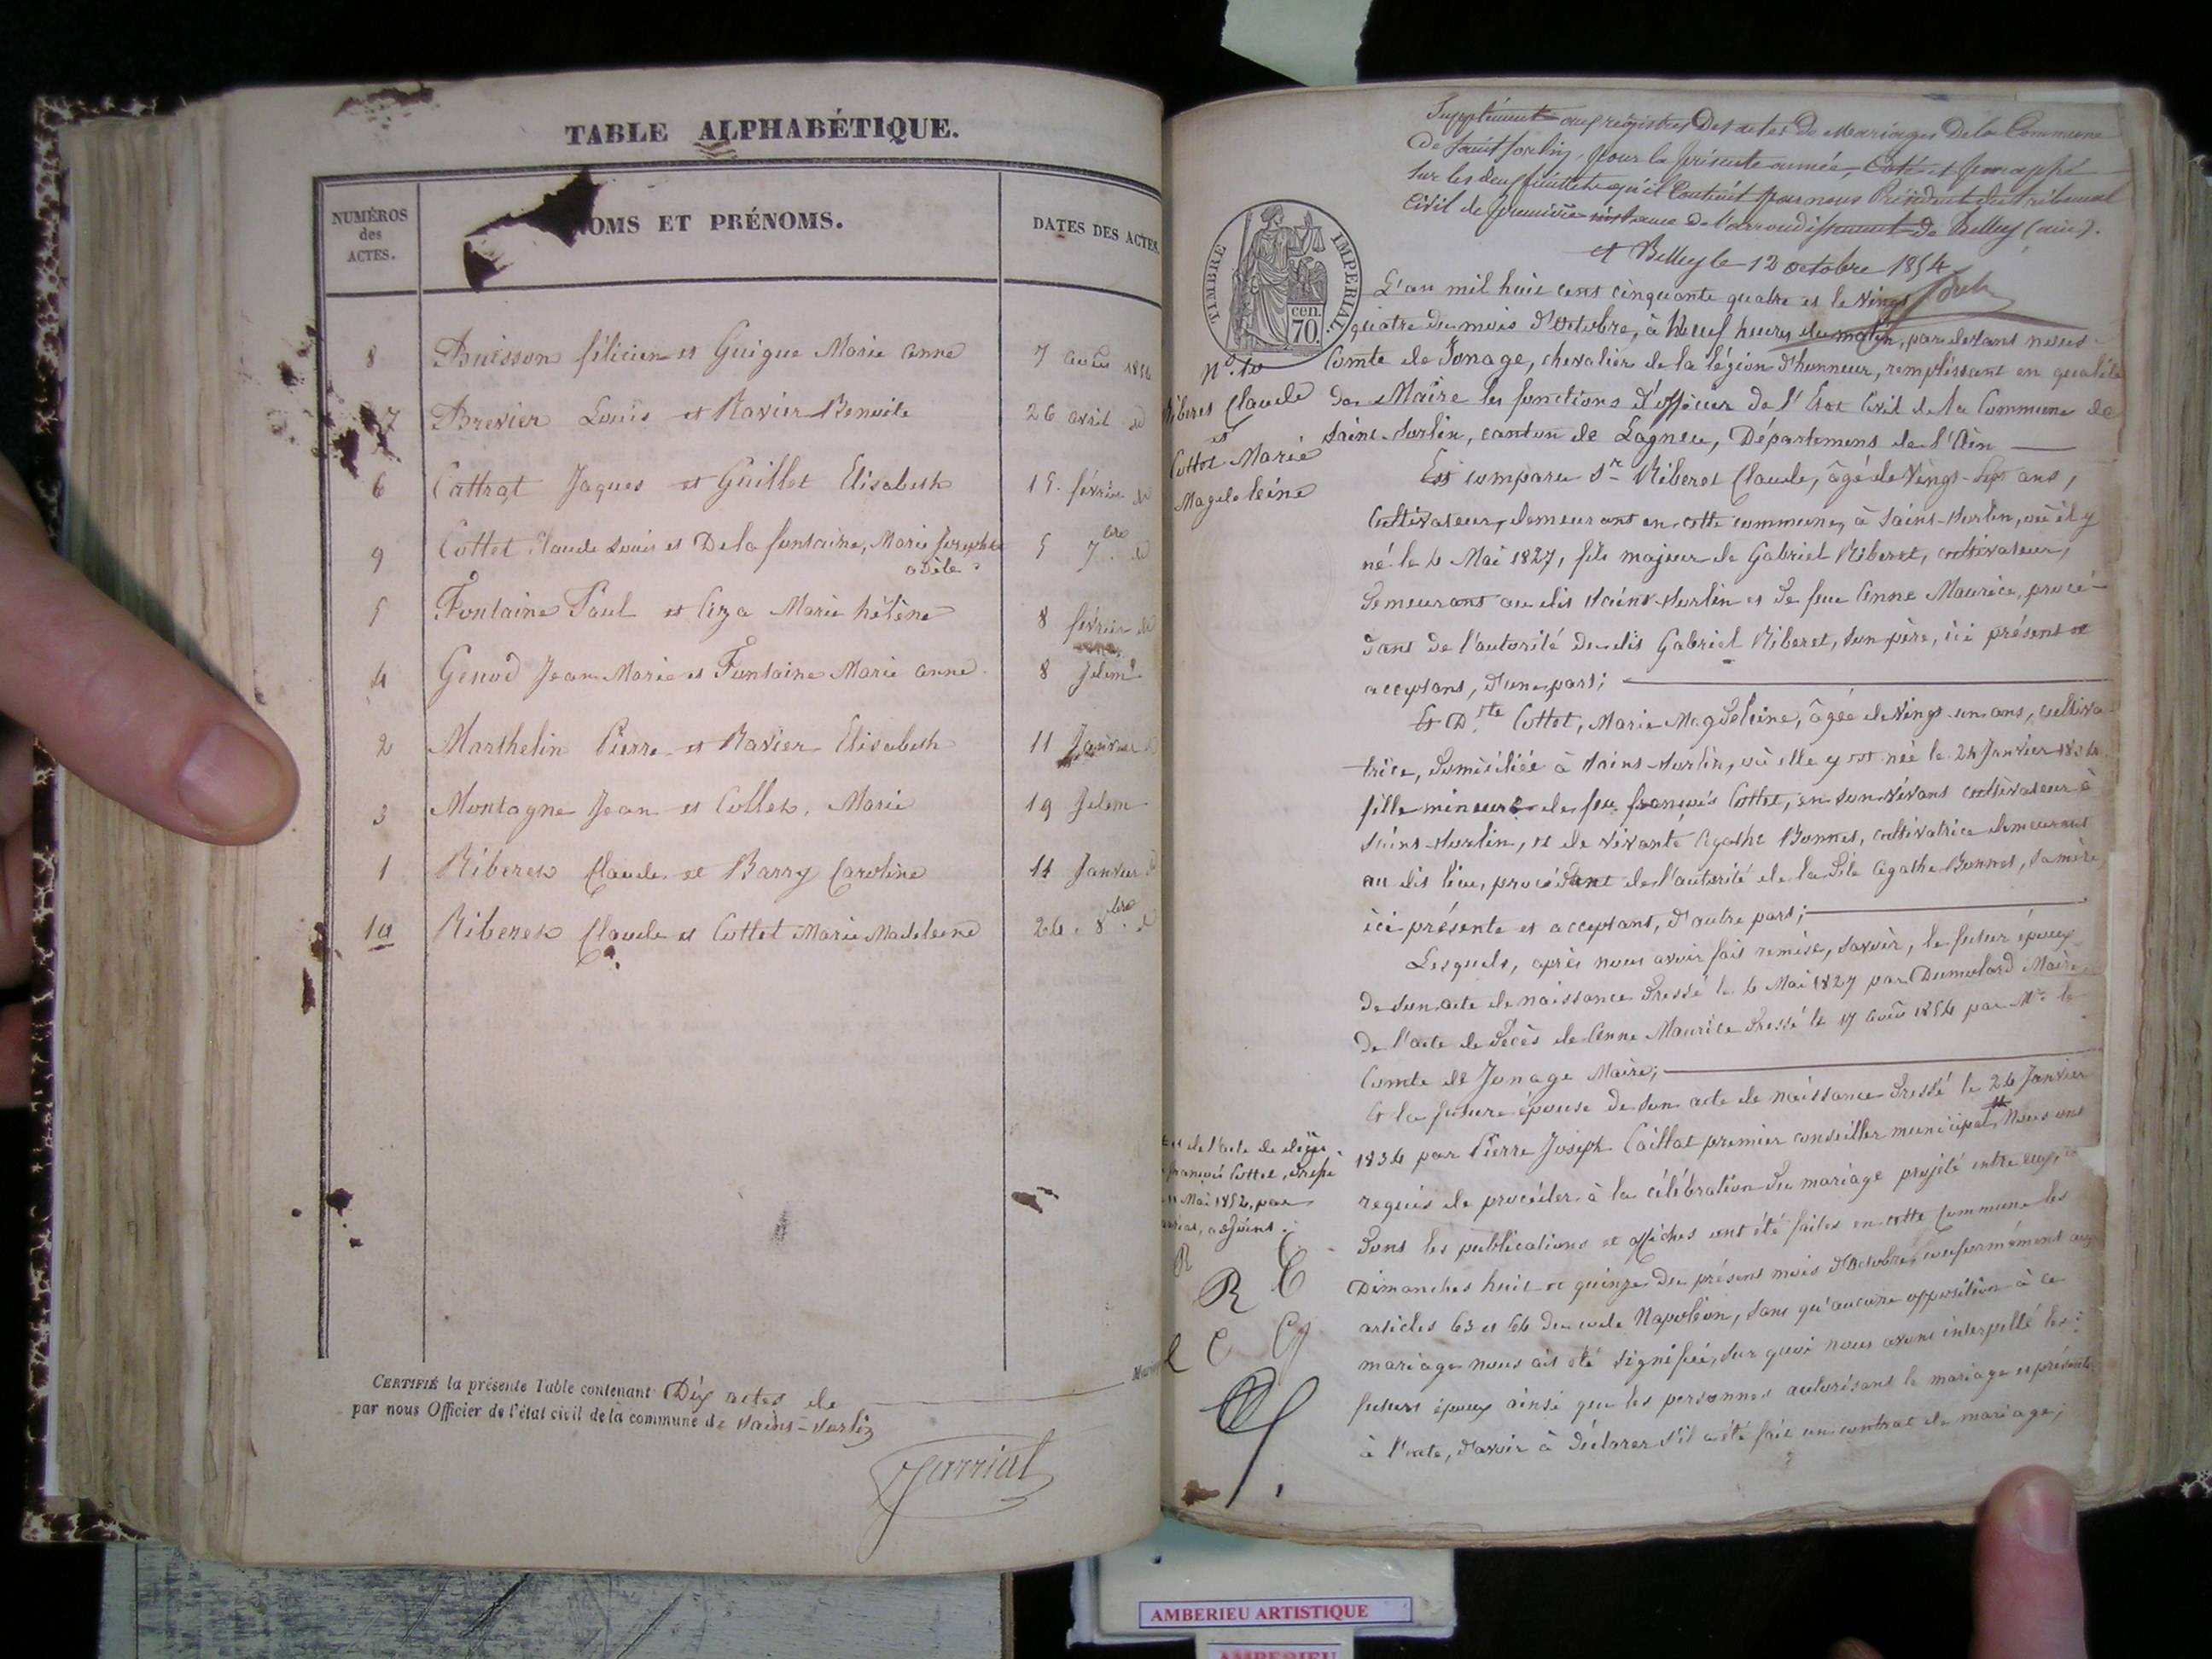 TABLE ALPHABÉTIQUE.
NUMÉROS
des
ACTES.
OMS ET PRÉNOMS.
DATES DES ACTES.
8 Buisson félicien et Guigue Marie anne 7 août 1854
7 Brevier Louis et Ravier Benoite 26 avril d
6 Cattrat Jaques et Guillet Elisabeth 15 février d
9 Cottet Claude Louis et Delafontaine, Marie Josephte 5 7bre d
adèle
5 Fontaine Paul et Liza Marie hélène 8 février d
4 Genod Jean Marie et Fontaine Marie anne 8 Idem
2 Marthelin Pierre et Ravier Elisabeth 11 Janvier d
3 Montagne Jean et Collet, Marie 19 Idem
1 Riberet Claude et Barry Caroline 11 Janvier d
10 Riberet Claude et Cottet Marie Madeleine 24. 8bre. d
CERTIFIÉ la présente Table contenant Dix actes de
par nous Officier de l'état civil de la commune de Saint-Sorlin
Jarriat
Supplément aux registres des actes de Mariages de la Commune
de Saint Sorlin, pour la présente année, Coté et paraphé
sur les deux feuillets qu'il contient par nous Président du tribunal
civil de première instance de l'arrondissement de Belley (ain).
A Belley le 12 octobre 1854
TIMBRE IMPÉRIAL
70 cen.
L'an mil huit cent cinquante quatre et le vingt
quatre du mois d'octobre, à Neuf heures du matin, par devant nous
Comte de Jonage, chevalier de la légion d'honneur, remplissant en qualité
de Maire les fonctions d'officier de l'Etat Civil de la Commune de
Saint-Sorlin, canton de Lagneu, Département de l'Ain
No. 10
Riberet Claude
et
Cottet Marie
Magdeleine
Est comparu Sr Riberet Claude, âgé de Vingt-Sept ans,
Cultivateur, demeurant en cette commune, à Saint-Sorlin, où il y
né le 6 Mai 1827, fils majeur de Gabriel Riberet, cultivateur,
demeurant au dit Saint-Sorlin et de feue Anne Maurice, procé-
dant de l'autorité du dit Gabriel Riberet, son père, ici présent et
acceptant, d'une part;
Et Dlle Cottet, Marie Magdeleine, âgée de Vingt-un ans, cultiva
trice, domiciliée à Saint-Sorlin, où elle y est née le 24 Janvier 1834
fille mineure de feu françois Cottet, en son vivant cultivateur à
Saint-Sorlin, et de vivante Agathe Bonnet, cultivatrice demeurant
au dit lieu, procédant de l'autorité de la dite Agathe Bonnet, sa mère,
ici présente et acceptant, d'autre part;
Lesquels, après nous avoir fait remise, savoir, le futur époux
de son acte de naissance dressé le 6 Mai 1827 par Dumolard Maire
de l'acte de décès de Anne Maurice dressé le 17 août 1854 par Mr. le
Comte de Jonage Maire;
Et la future épouse de son acte de naissance dressé le 26 Janvier
1834 par Pierre Joseph Caillat premier conseiller municipal, Nous ont
requis de procéder à la célébration du mariage projeté entre eux, et
dont les publications et affiches ont été faites en cette Commune les
Dimanches huit et quinze du présent mois d'Octobre, conformément aux
articles 63 et 64 du code Napoléon, sans qu'aucune opposition à ce
mariage nous ait été signifiée, sur quoi nous avons interpellé les
futurs époux ainsi que les personnes autorisant le mariage et présents
à l'acte, d'avoir à déclarer s'il a été fait un contrat de mariage;
de l'acte de décès
françois Cottet, dressé
Mai 1852, par
adjoint.
R
R C
C
AMBERIEU ARTISTIQUE
AMBERIEU